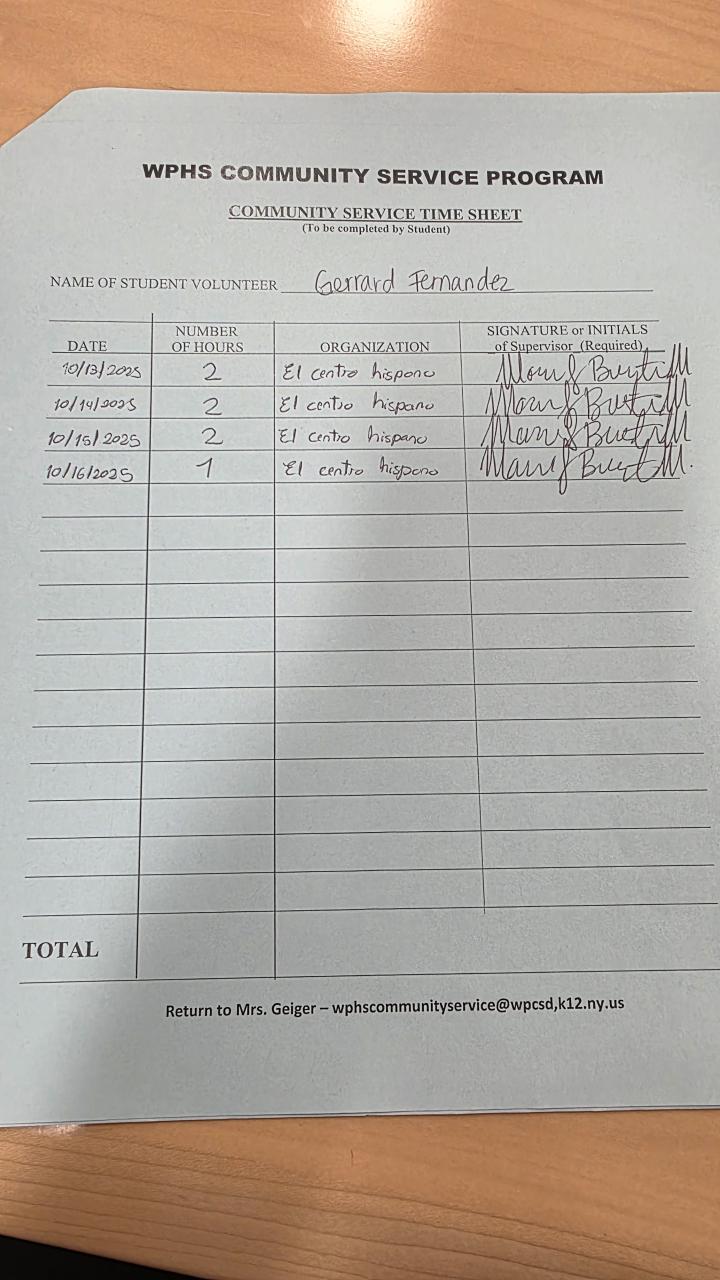 WPHS COMMUNITY SERVICE PROGRAM
COMMUNITY SERVICE TIME SHEET
(To be completed by Student)
NAME OF STUDENT VOLUNTEER Gerrard Fernandez
DATE NUMBER OF HOURS ORGANIZATION SIGNATURE or INITIALS of Supervisor (Required)
10/13/2025 2 El centro hispano
10/14/2025 2 El centro hispano
10/15/2025 2 El centro hispano
10/16/2025 1 El centro hispano
TOTAL
Return to Mrs. Geiger – wphscommunityservice@wpcsd,k12.ny.us